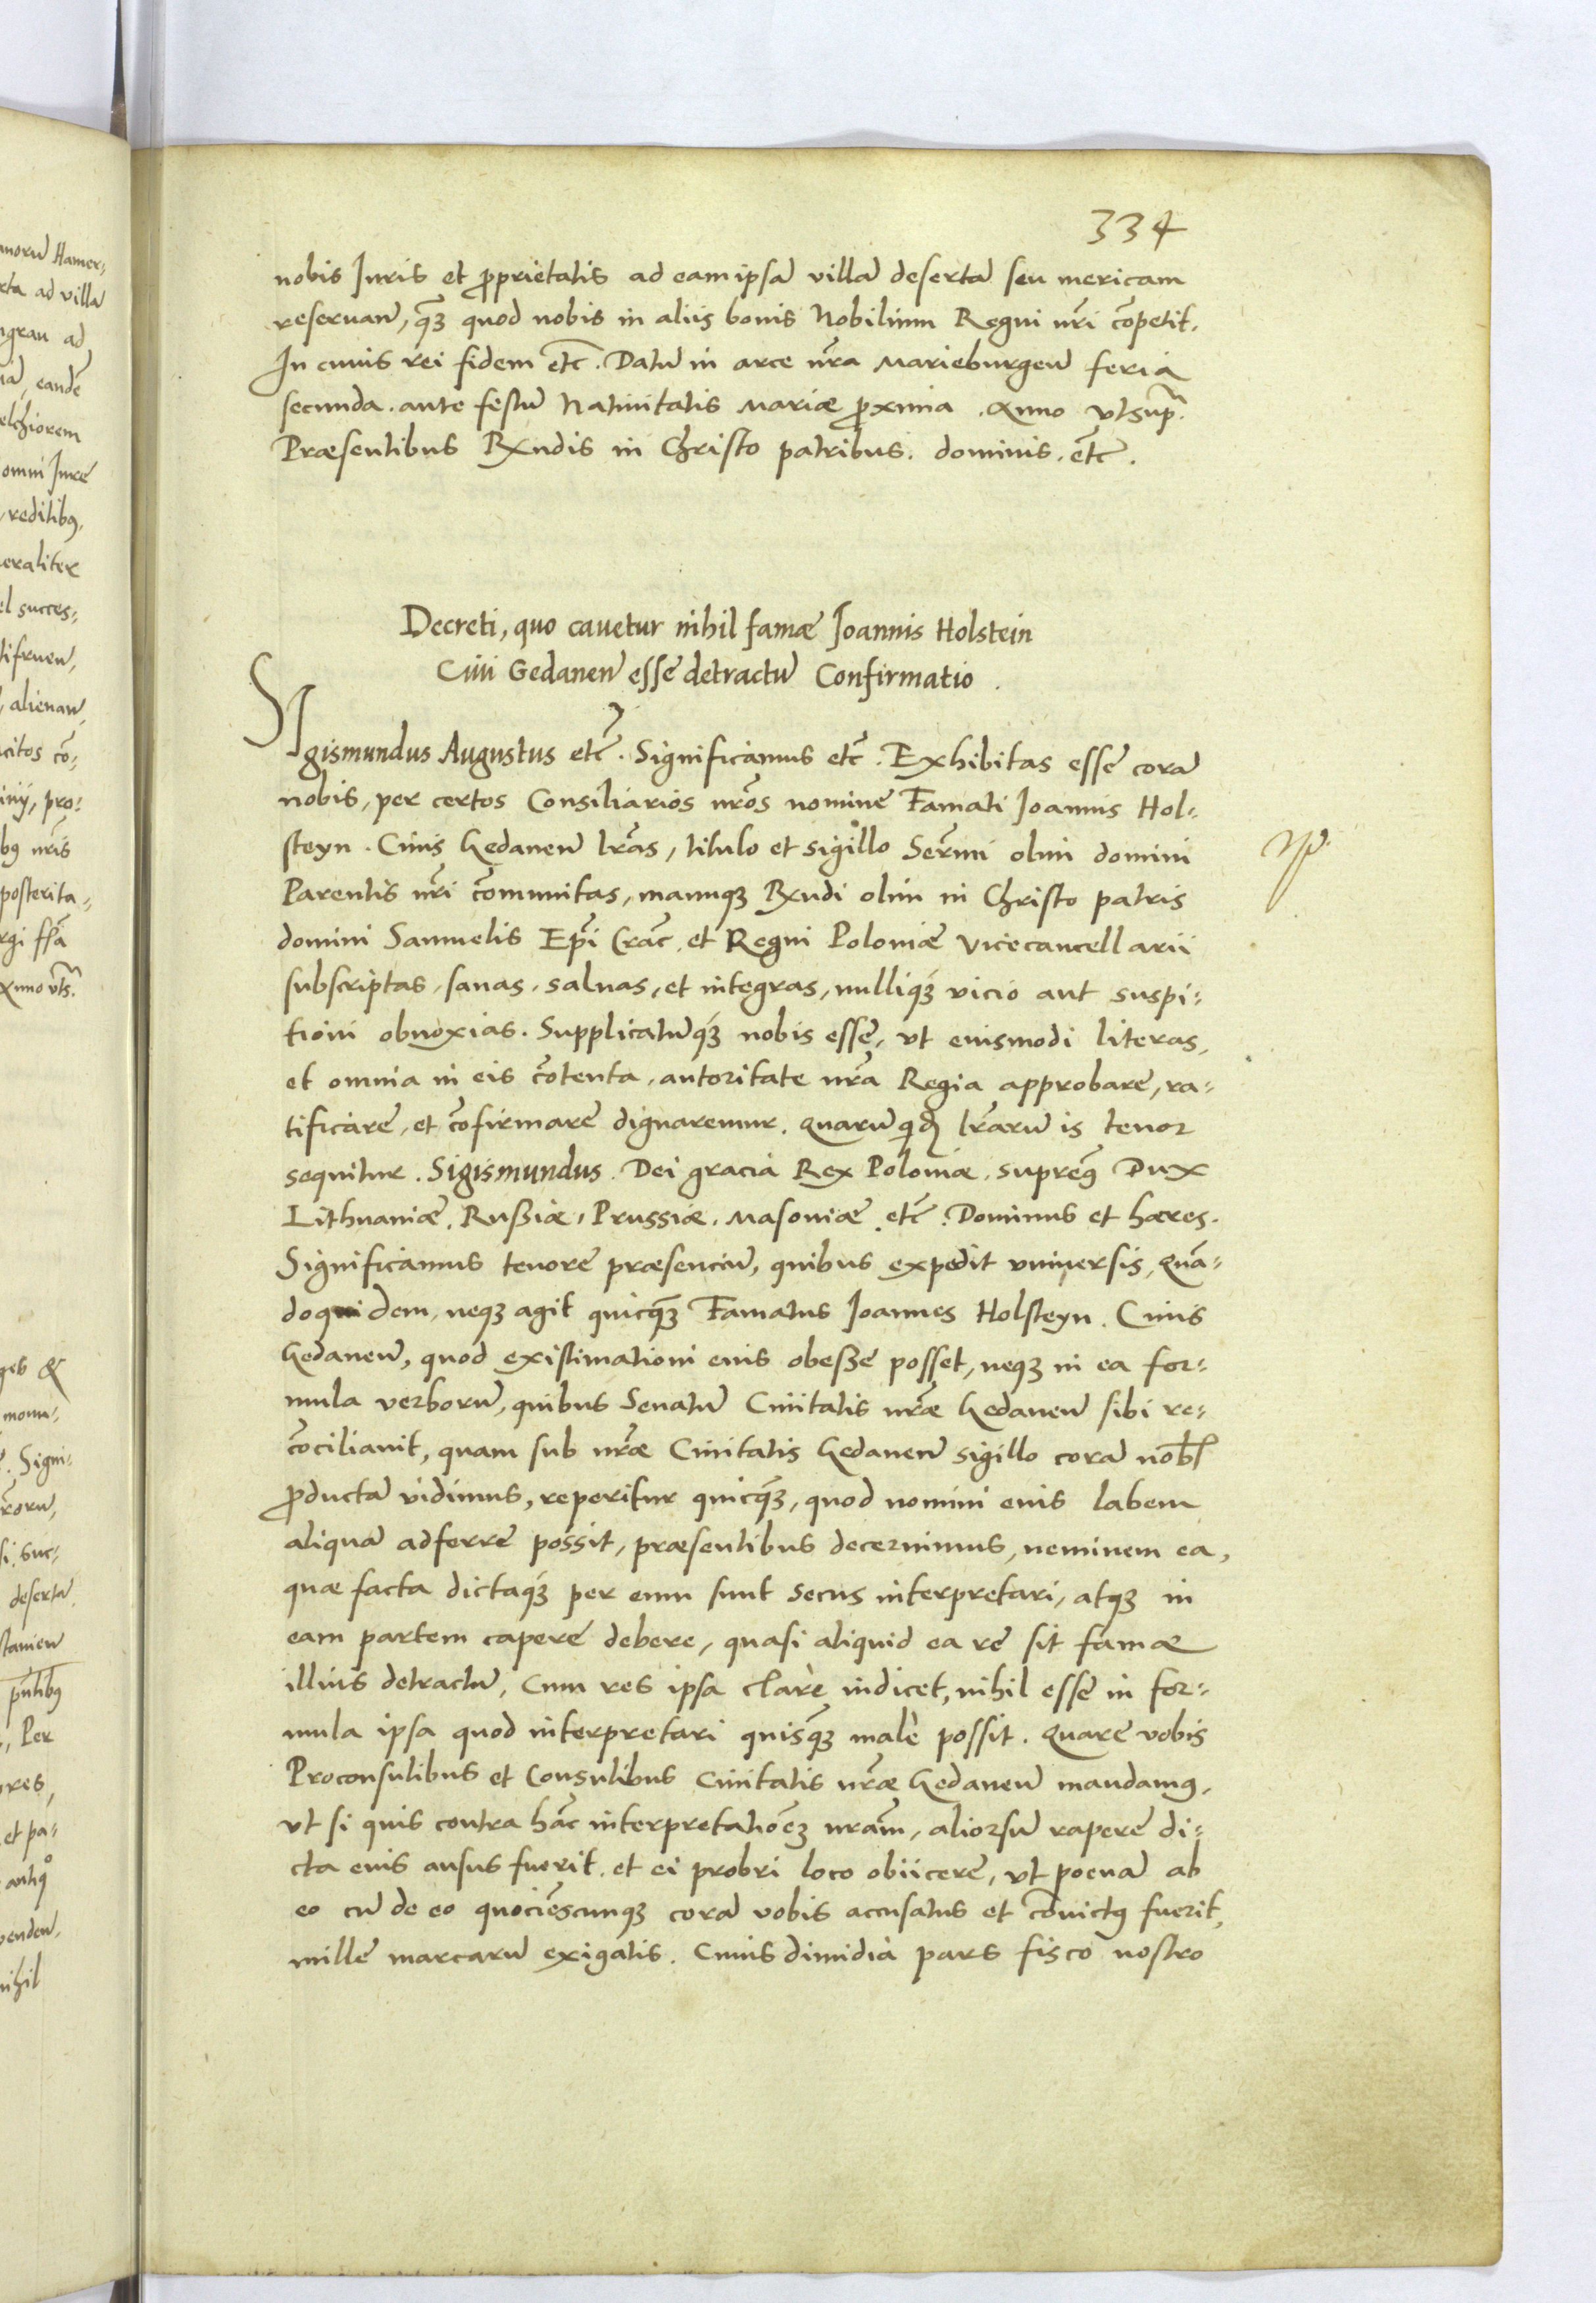 334
nobis Iuris et ꝓprietatis ad eam ipsā villā desertā seu mericam
reseruañ, qꝫ quod nobis in aliis bonis Nobilium Regni nr̄i cōpetit.
In cuius rei fidem etc̄. Datū in arce nr̄a Marieburgeñ feria
secunda ante festū Natiuitatis Mariæ ꝓxima. Anno vtsup̄.
Præsentibus Rx̄ndis in Christo patribus. dominis. etc̄.
Decreti, quo cauetur nihil famæ Joannis Holstein
Ciui Gedaneñ esse detractū Confirmatio.
SIgismundus Augustus etc̄. Significamus etc̄. Exhibitas esse corā
nobis, per certos Consiliarios nr̄os nomine Famati Joannis Hol-
steyn. Ciuis Gedaneñ lr̄as, titulo et sigillo Ser̄mi olim domini
Parentis nr̄i cōmunitas, manuqꝫ Rx̄ndi olim in Christo patris
domini Samuelis Ep̄i Crac̄. et Regni Poloniæ Vicecancellarii
subscriptas, sanas, saluas, et integras, nulliqꝫ vicio aut suspi-
tioni obnoxias. Supplicatūqꝫ nobis esse, vt eiusmodi literas,
et omnia in eis cōtenta, autoritate nr̄a Regia approbare, ra-
tificare, et cōfirmare dignaremur. Quarū qd̄ lr̄arū is tenor
sequitur. Sigismundus. Dei gracia Rex Poloniæ. supremꝰ Dux
Lithuaniæ, Rußiæ, Prussiæ, Masoniæ etc̄. Dominus et hæres.
Significamus tenore præsenciū, quibus expedit vniuersis, Quā-
doquidem, neqꝫ agit quicqꝫ Famatus Joannes Holsteyn. Ciuis
Gedaneñ, quod existimationi euis obeße posset, neqꝫ in ea for-
mula verborū, quibus Senatū Ciuitatis nr̄æ Gedaneñ sibi re-
cōciliauit, quam sub nr̄æ Ciuitatis Gedaneñ sigillo corā nob̄
ꝓductā vidimus, reperitur quicqꝫ, quod nomini eius labem
aliquā adferre possit, præsentibus decernimus, neminem ea,
quæ facta dictaqꝫ per eum sunt secus interpretari, atqꝫ in
eam partem capere debere, quasi aliquid ea re sit famæ
illius detractū, Cum res ipsa clarè indicet, nihil esse in for-
mula ipsa quod interpretari quisqꝫ malè possit. Quare vobis
Proconsulibus et Consulibus Ciuitatis nr̄æ Gedaneñ mandamꝰ,
vt si quis contra hāc interpretatiōeꝫ nram̄, aliorsū rapere di-
cta eius ausus fuerit. et ei probri loco obiicere, vt poenā ab
eo cū de eo quociēscunqꝫ corā vobis accusatus et cōuictꝰ fuerit,
mille marcarū exigatis. Cuius dimidia pars fisco nostro